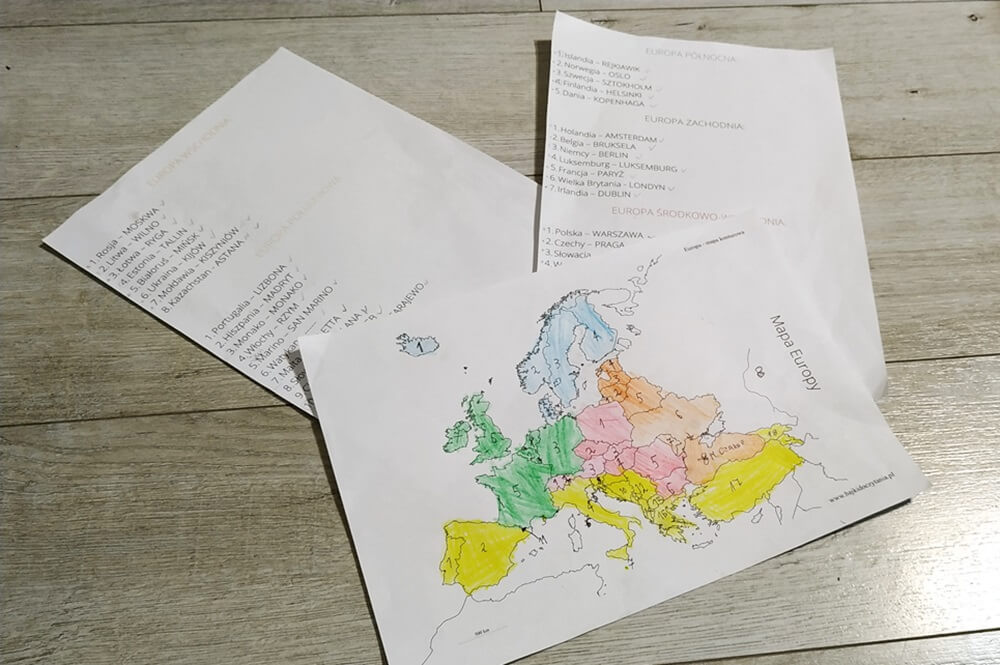 EUROPA WSCHODNIA:
1. Rosja – MOSKWA ✓
2. Litwa – WILNO ✓
3. Łotwa – RYGA ✓
4. Estonia – TALLIN ✓
5. Białoruś – MIŃSK ✓
6. Ukraina – KIJÓW ✓
7. Mołdawia – KISZYNIÓW ✓
8. Kazachstan – ASTANA ✓
EUROPA POŁUDNIOWA:
Portugalia – LIZBONA ✓
2. Hiszpania – MADRYT ✓
3. Monako – MONAKO ✓
4. Włochy – RZYM ✓
5. Marino – SAN MARINO ✓
6. Wat
7. Malta ETTA ✓
8. Sło ANA ✓
9. ARAJEWO ✓
EUROPA PÓŁNOCNA:
1. Islandia – REJKIAWIK ✓
2. Norwegia – OSLO ✓
3. Szwecja – SZTOKHOLM ✓
4. Finlandia – HELSINKI ✓
5. Dania – KOPENHAGA ✓
EUROPA ZACHODNIA:
1. Holandia – AMSTERDAM ✓
2. Belgia – BRUKSELA ✓
3. Niemcy – BERLIN ✓
4. Luksemburg – LUKSEMBURG ✓
5. Francja – PARYŻ ✓
6. Wielka Brytania – LONDYN ✓
7. Irlandia – DUBLIN ✓
EUROPA ŚRODKOWO-W ODNIA:
1. Polska – WARSZAWA ✓
2. Czechy – PRAGA
3. Słowacja
4. W
Europa - mapa konturowa
Mapa Europy
www.bajkidoczytania.pl
1
2
3
4
5
6
8
M. CZARNE
17
5
2
1
500 km